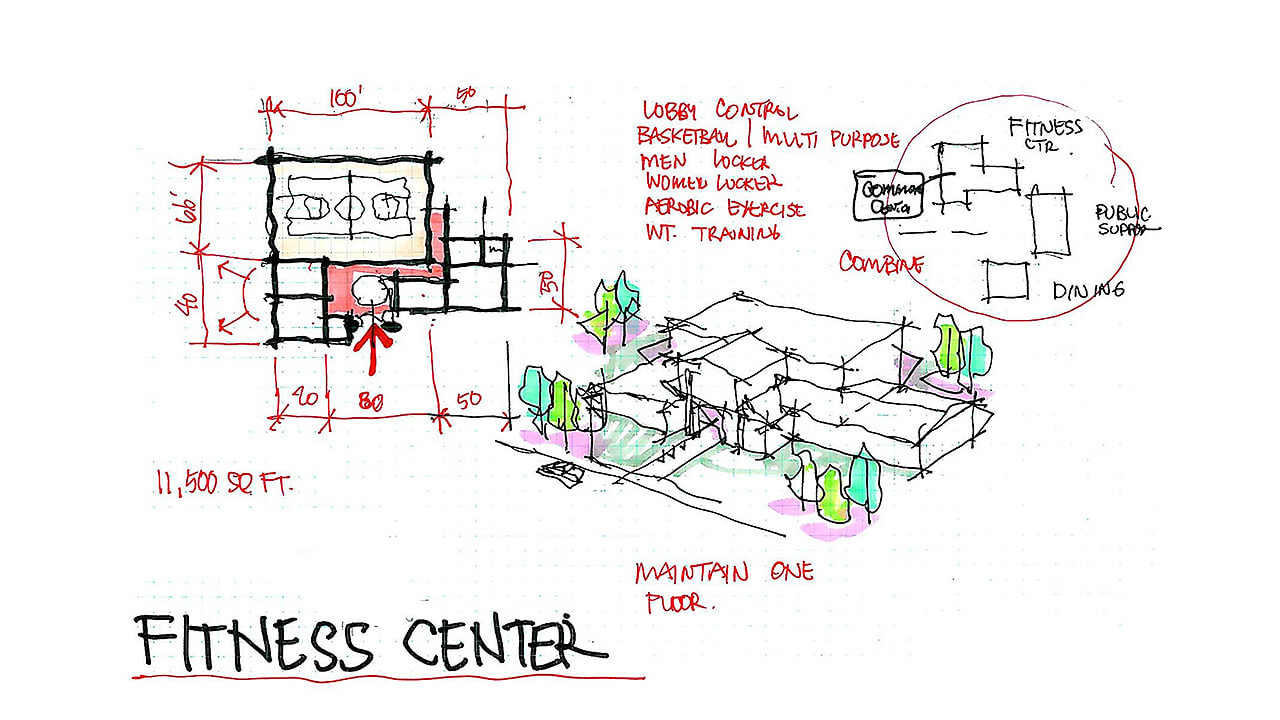 100'
50
66'
40
50
20
80
50
11,500 SQ FT.
LOBBY CONTROL
BASKETBALL | MULTI PURPOSE
MEN LOCKER
WOMEN LOCKER
AEROBIC EXERCISE
WT. TRAINING
COMBINE
FITNESS
CTR.
PUBLIC
SUPPLY
DINING
MAINTAIN ONE
FLOOR.
FITNESS CENTER